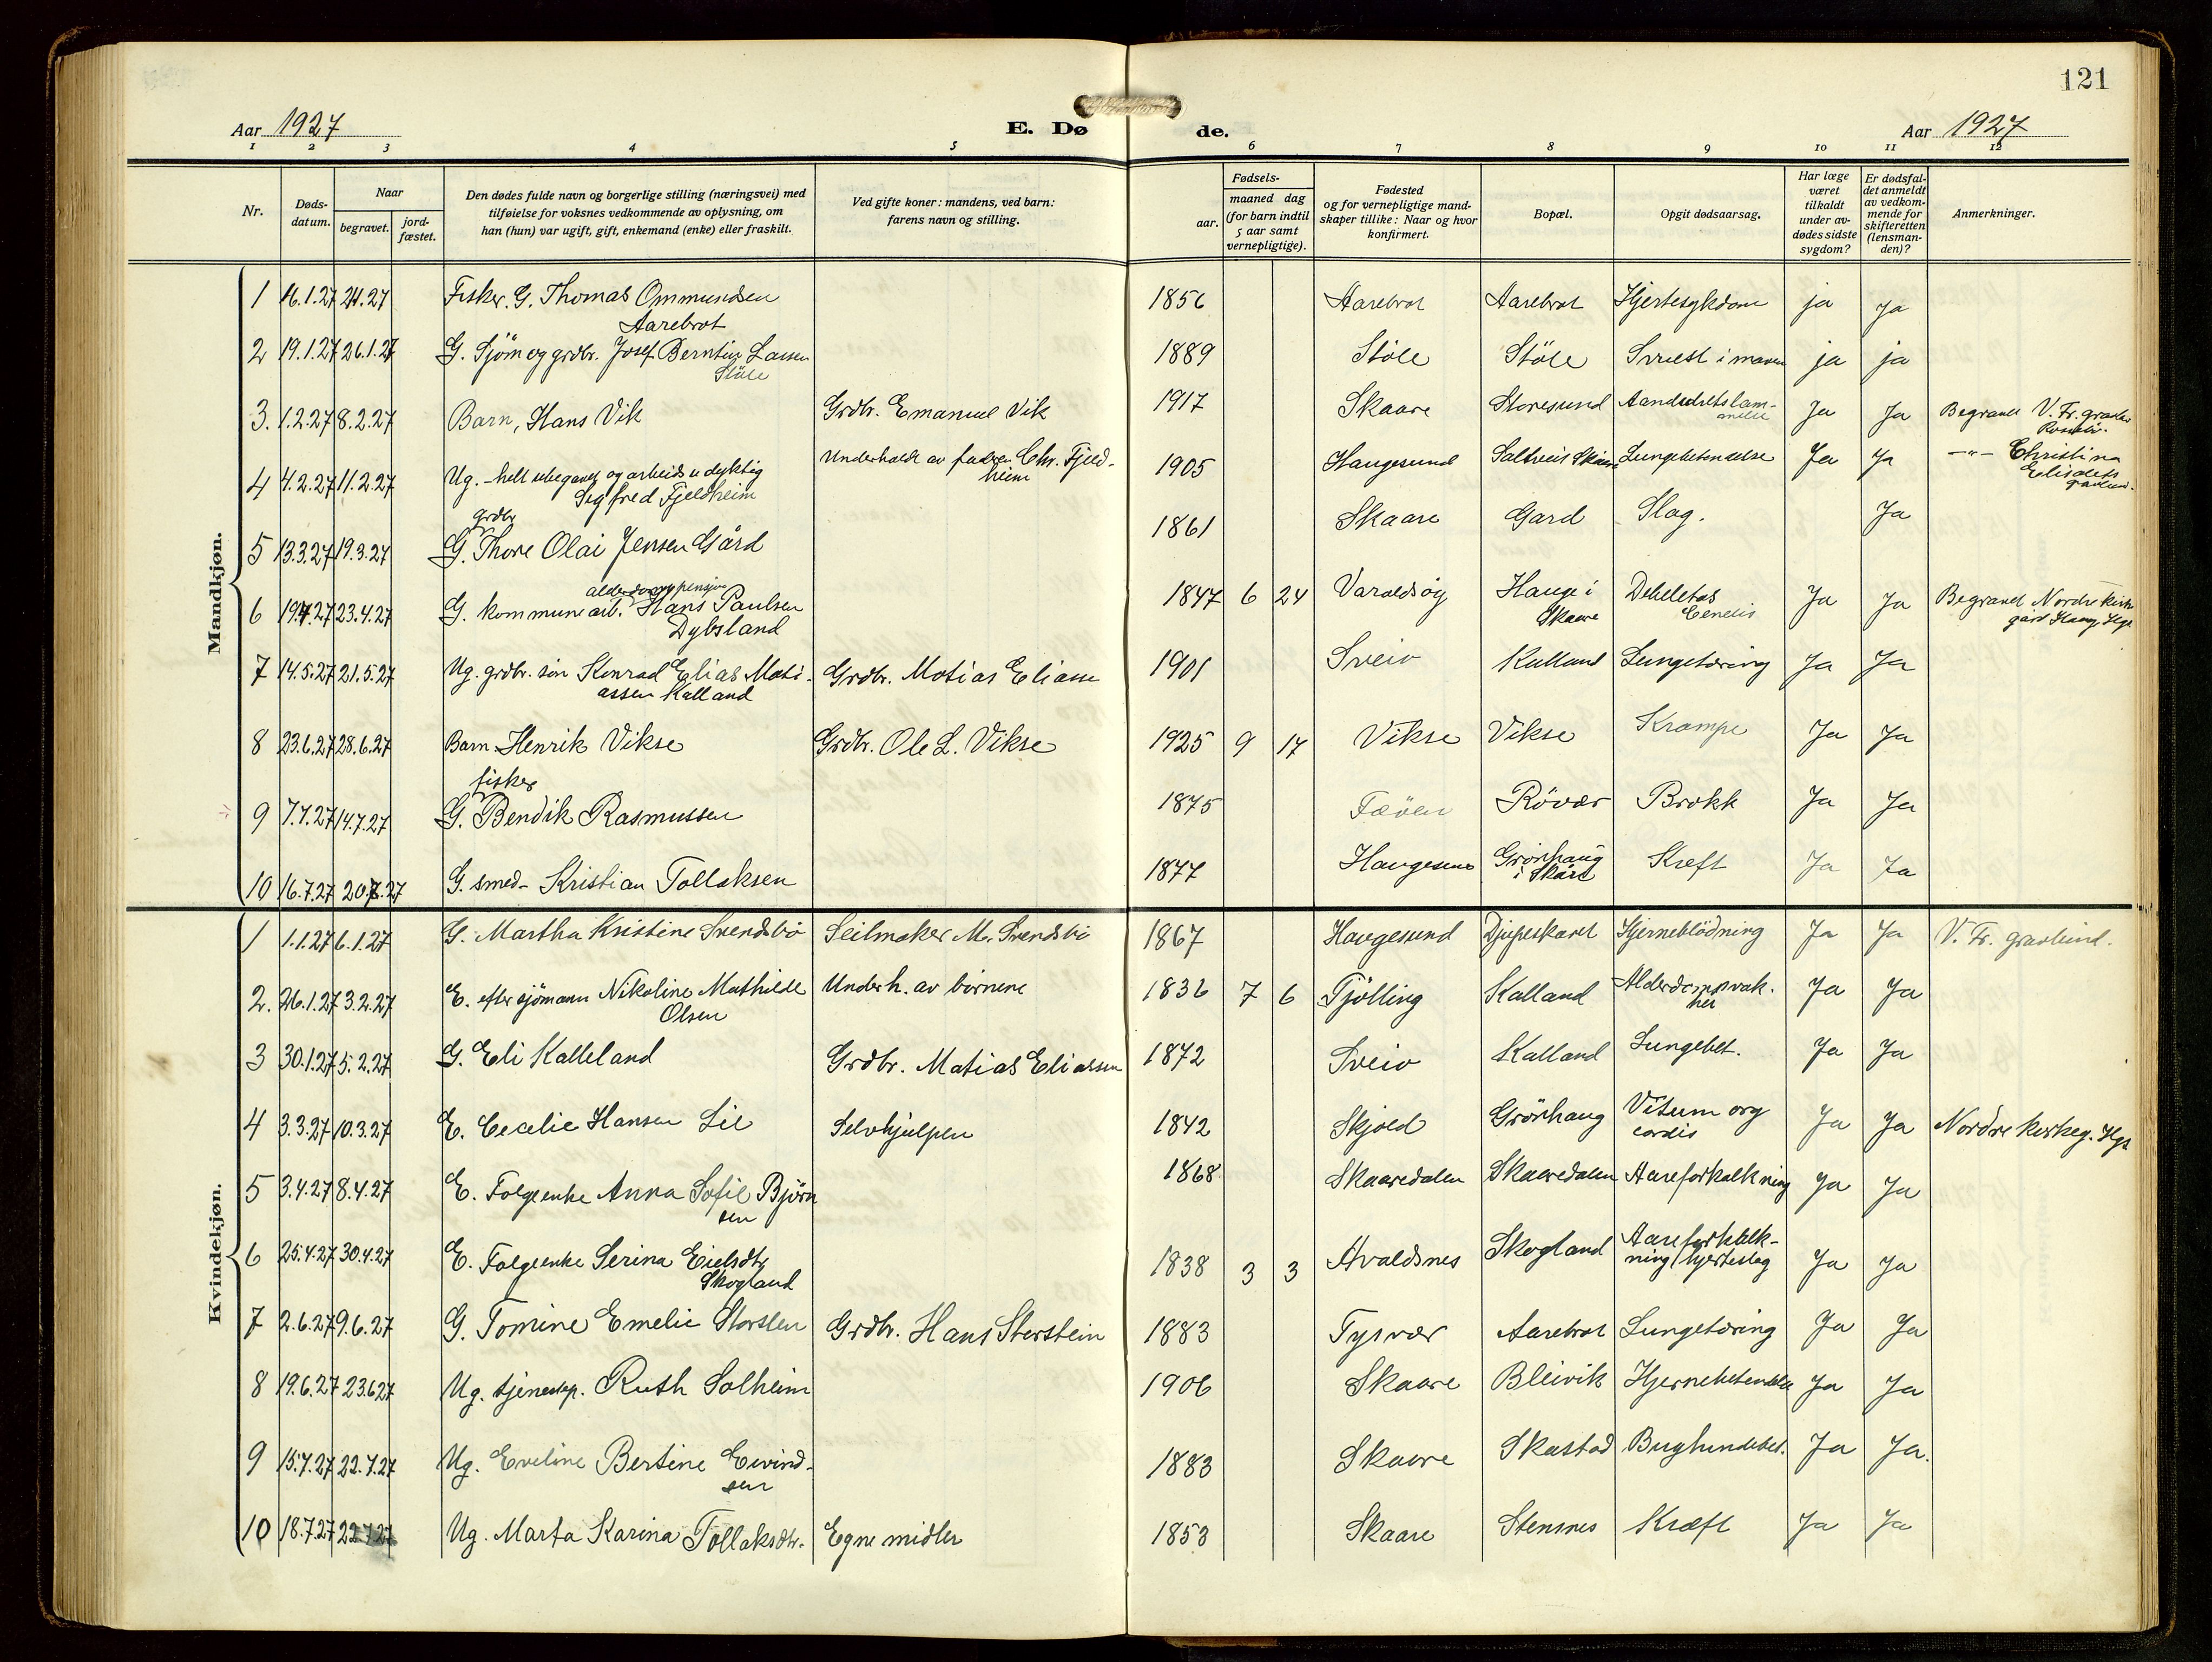 121
Aar 1927 E. Dø de. Aar 1927
1 2 3 4 5 6 7 8 9 10 11 12
Nr.
Døds-
datum.
Naar
begravet.
jord-
fæstet.
Den dødes fulde navn og borgerlige stilling (næringsvei) med
tilføielse for voksnes vedkommende av oplysning, om
han (hun) var ugift, gift, enkemand (enke) eller fraskilt.
Ved gifte koner: mandens, ved barn:
farens navn og stilling.
Fødsels-
aar.
maaned dag
(for barn indtil
5 aar samt
vernepligtige).
Fødested
og for vernepligtige mand-
skaper tillike: Naar og hvor
konfirmert.
Bopæl.
Opgit dødsaarsag.
Har læge
været
tilkaldt
under av-
dødes sidste
sygdom?
Er dødsfal-
det anmeldt
av vedkom-
mende for
skifteretten
(lensman-
den)?
Anmerkninger.
Mandkjøn.
1 16.1.27 Fisker. G. Thomas Ommundsen 1856 Aarebrot Aarebrot Hjertesykdom ja Ja
Aarebrot
2 19.1.27 26.1.27 G. Sjöm og grdbr. Josef Berntin Lassen 1889 Stöle Stöle i maven ja ja
Stöle
3. 1.2.27 8.2.27 Barn, Hans Vik Grdbr. Emanuel Vik 1917 Skaare Storesund Ja Ja Begravd V. Fr.
4 4.2.27 11.2.27 Ug. - helt ubegavet og arbeidsudyktig Underholdt av faderen Chr. Fjeld- 1905 Haugesund Saltveit Skaare Lungebetendelse Ja Ja -"- Christina
Sigfred Fjeldheim heim Elisabets
grdbr
5 13.3.27 19.3.27 G. Thore Olai Jensen Gård 1861 Skaare Gard Slag. Ja
alderdomspensjon
6 19.4.27 23.4.27 G. kommunearb. Hans Paulsen 1847 6 24 Varaldsøy Hauge i Ja Ja Begravd Nordre kirke
Dybsland Skaare gård
7 14.5.27 21.5.27 Ug. grdbr. sön Konrad Elias Mati- Grdbr. Matias Eliassen 1901 Sveio Kalland Lungetæring Ja Ja
assen Kalland
8 23.6.27 28.6.27 Barn Henrik Vikse Grdbr. Ole L. Vikse 1925 9 17 Vikse Vikse Krampe Ja Ja
fisker
9 7.7.27 14.7.27 G. Bendik Rasmussen 1875 Fæöen Rövær Brokk Ja Ja
10 16.7.27 20.7.27 G. smed- Kristian Tollaksen 1877 Haugesund Grönhaug Kreft Ja Ja
i Skåre
Kvindekjøn.
1 1.1.27 6.1.27 G. Martha Kristine Svendsbö Seilmaker M. Svendsbö 1867 Haugesund Djupeskaret Hjerneblödning Ja Ja V. Fr. gravlund.
2. 26.1.27 3.2.27 E. efter sjömann Nikoline Mathilde Underh. av börnene 1836 7 6 Tjölling Kalland Alderdomssvak- Ja Ja
Olsen het
3 30.1.27 5.2.27 G. Eli Kalleland Grdbr. Matias Eliassen 1872 Sveio Kalland Lungebet. Ja Ja
4 3.3.27 10.3.27 E. Cecelie Hansen Lie Selvhjulpen 1842 Skjold Grönhaug Vitium org Ja Ja Nordre kirkeg. Hgs
cordis
5 3.4.27 8.4.27 E. Folgeenke Anna Sofie Björn 1868 Skaaredalen Skaaredalen Aareforkalkning Ja Ja
sen
6 25.4.27 30.4.27 E. Folgeenke Serina Eielsdtr 1838 3 3 Avaldsnes Skogland Aareforkalk- Ja Ja
Skogland ning/hjerteslag
7 2.6.27 9.6.27 G. Tomine Emelie Storsten Grdbr. Hans Storstein 1883 Tysvær Aarebrot Lungetæring Ja Ja
8 19.6.27 23.6.27 Ug. tjenestep. Ruth Solheim 1906 Skaare Bleivik Hjernebetendelse Ja Ja
9 15.7.27 22.7.27 Ug. Eveline Bertine Eivind- 1883 Skaare Skastad Bughindebet. Ja Ja.
sen
10 18.7.27 22.7.27 Ug. Marta Karina Tollaksdtr. Egne midler 1853 Skaare Stensnes Kræft Ja Ja